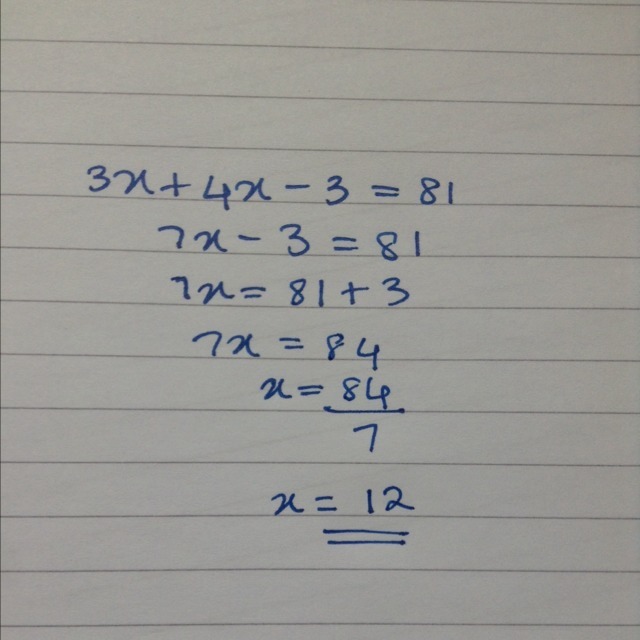 3x + 4x - 3 = 81
7x - 3 = 81
7x = 81 + 3
7x = 84
x = 84
7
x = 12